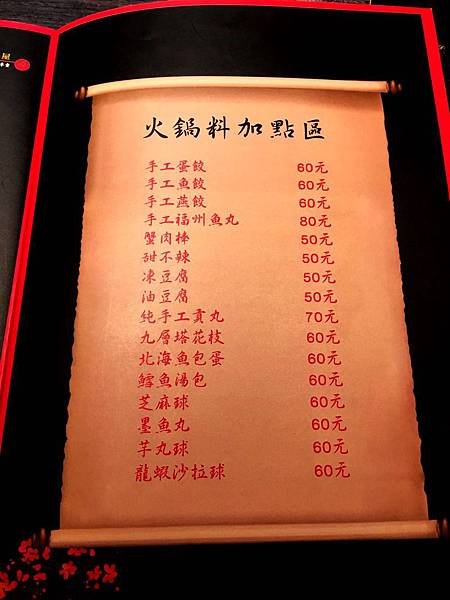 火鍋料加點區
手工蛋餃 60元
手工魚餃 60元
手工燕餃 60元
手工福州魚丸 80元
蟹肉棒 50元
甜不辣 50元
凍豆腐 50元
油豆腐 50元
純手工貢丸 70元
九層塔花枝 60元
北海魚包蛋 60元
鱈魚湯包 60元
芝麻球 60元
墨魚丸 60元
芋丸球 60元
龍蝦沙拉球 60元